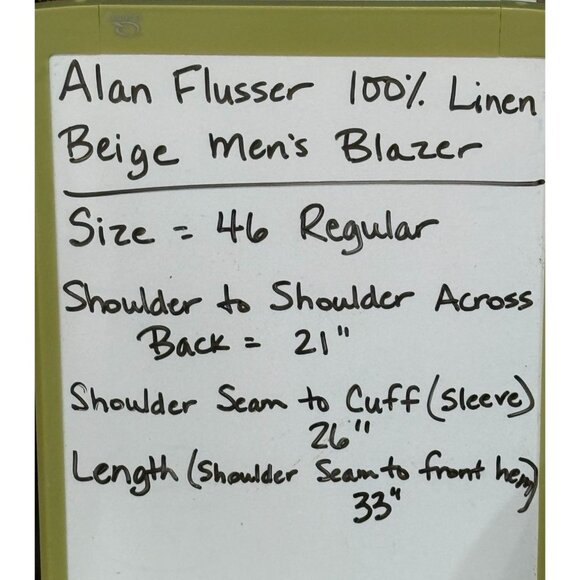 Alan Flusser 100% Linen
Beige Men's Blazer
Size = 46 Regular
Shoulder to Shoulder Across
Back = 21"
Shoulder Seam to Cuff (Sleeve)
26"
Length (Shoulder Seam to front hem)
33"